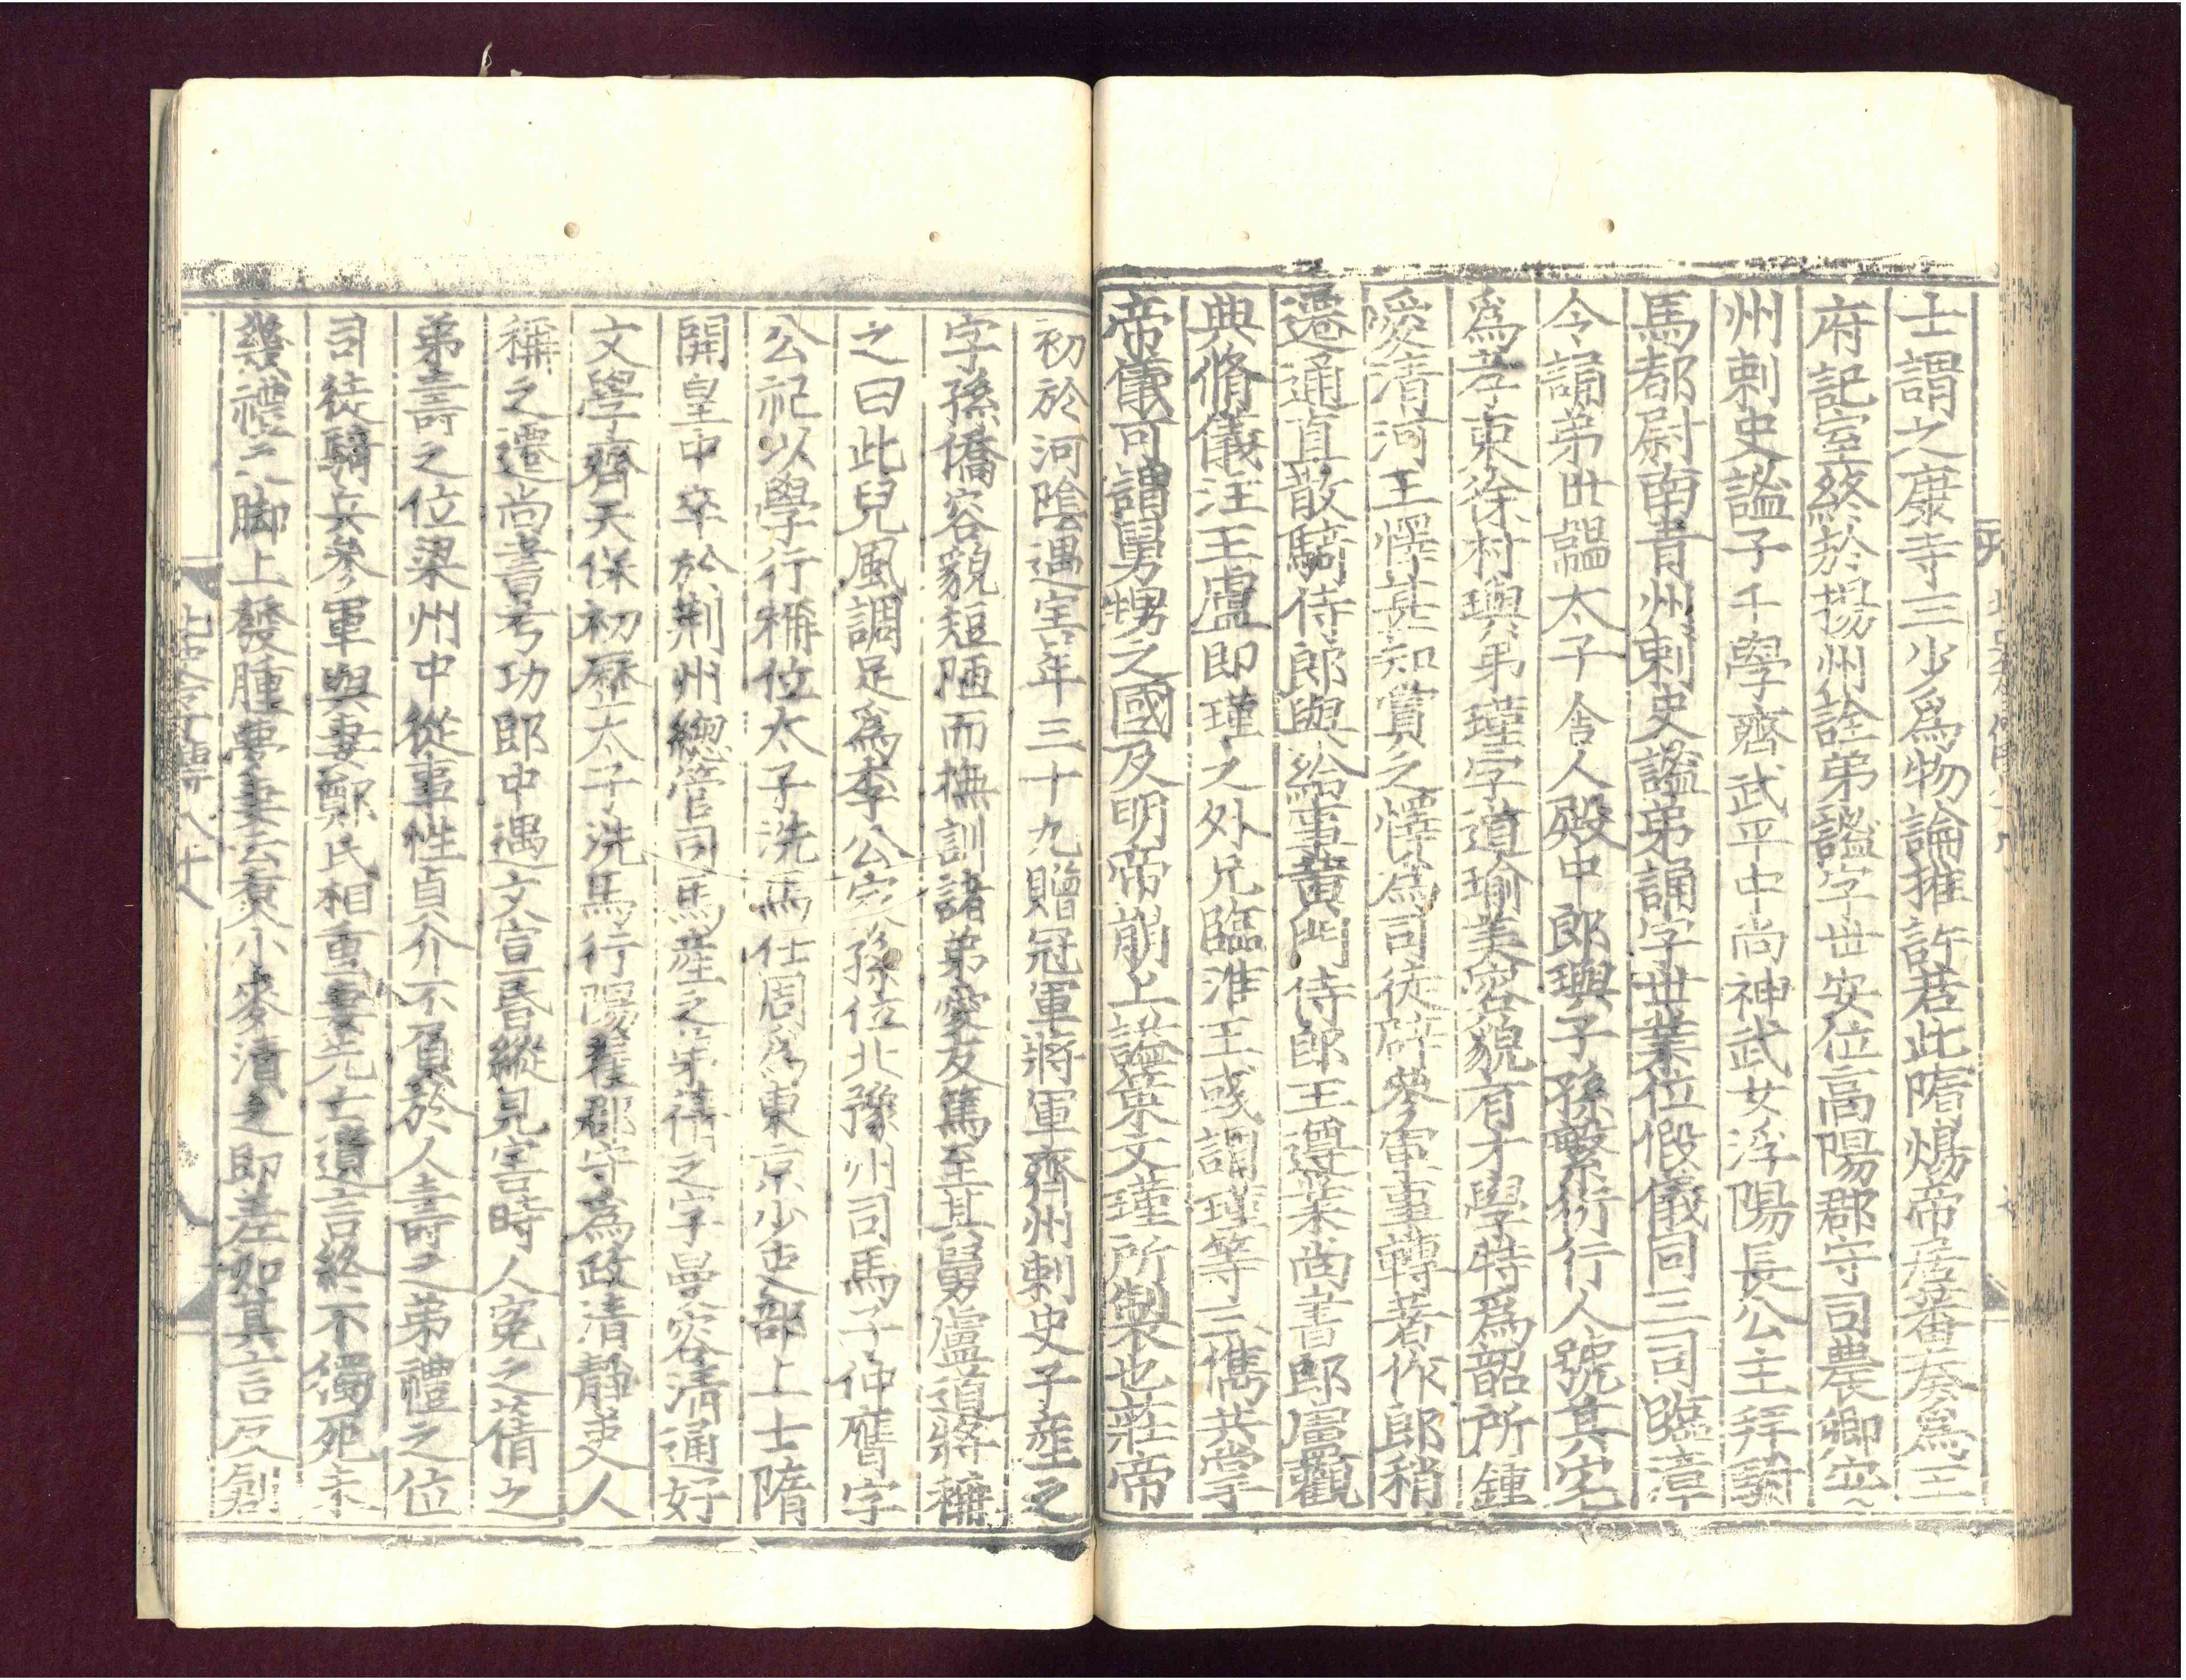 士謂之康寺三少爲物論推許若此隋煬帝居蕃奏爲王
府記室終於揚州詮弟謐字世安位高陽郡守司農卿安
州刺史謐子千學齊武平中尚神武女浮陽長公主拜駙
馬都尉南青州刺史謐弟誦字世業位假儀同三司臨漳
令誦弟世韞太子舍人殿中郎璵子孫繁衍行人號其宅
爲孝東徐村璵弟瑾字道瑜美容貌有才學特爲韶所鍾
愛清河王懌甚知賞之懌爲司徒辟參軍事轉著作郎稍
遷通直散騎侍郎與給事黃門侍郎王遵業尚書郎盧觀
典脩儀注王盧即瑾之外兄臨淮王彧謂瑾等三儁共掌
帝儀可謂舅甥之國及明帝崩上諡策文瑾所製也莊帝
初於河陰遇害年三十九贈冠軍將軍齊州刺史子産之
字孫僑容貌短陋而撫訓諸弟愛友篤至其舅盧道將稱
之曰此兒風調足爲李公家孫位北豫州司馬子仲膺字
公祀以學行稱位太子洗馬仕周爲東京少吏部上士隋
開皇中卒於荆州總管司馬産之弟蒨之字曼容清通好
文學齊天保初歷太子洗馬行陽翟郡守爲政清靜吏人
稱之遷尚書考功郎中遇文宣昏縱見害時人寃之蒨之
弟壽之位梁州中從事性貞介不負於人壽之弟禮之位
司徒騎兵參軍與妻鄭氏相重妻先亡遺言終不獨死未
幾禮之脚上發腫夢妻云煑小麥漬之即差如其言反創
北史令丁傳八十八